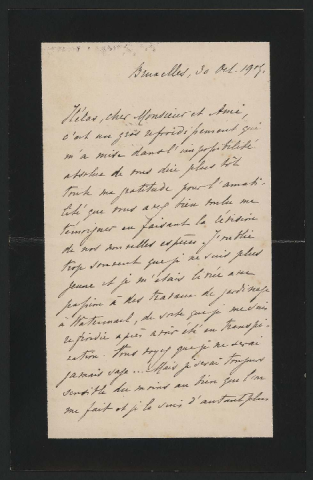 Bruxelles, 30 Oct. 1905.
Hélas, cher Monsieur et Ami,
c'est un gros refroidissement qui
m'a mise dans l'impossibilité
absolue de vous dire plus tôt
toute ma gratitude pour l'amabi-
lité que vous avez bien voulu me
témoigner en faisant la révision
de nos nouvelles espèces. J'oublie
trop souvent que je ne suis plus
jeune et je m'étais livrée avec
passion à des travaux de jardinage
à Watermael, de sorte que je me suis
refroidie après avoir été en transpi-
ration. Vous voyez que je ne serai
jamais sage... Mais je serai toujours
sensible du moins au bien que l'on
me fait et je le suis d'autant plus